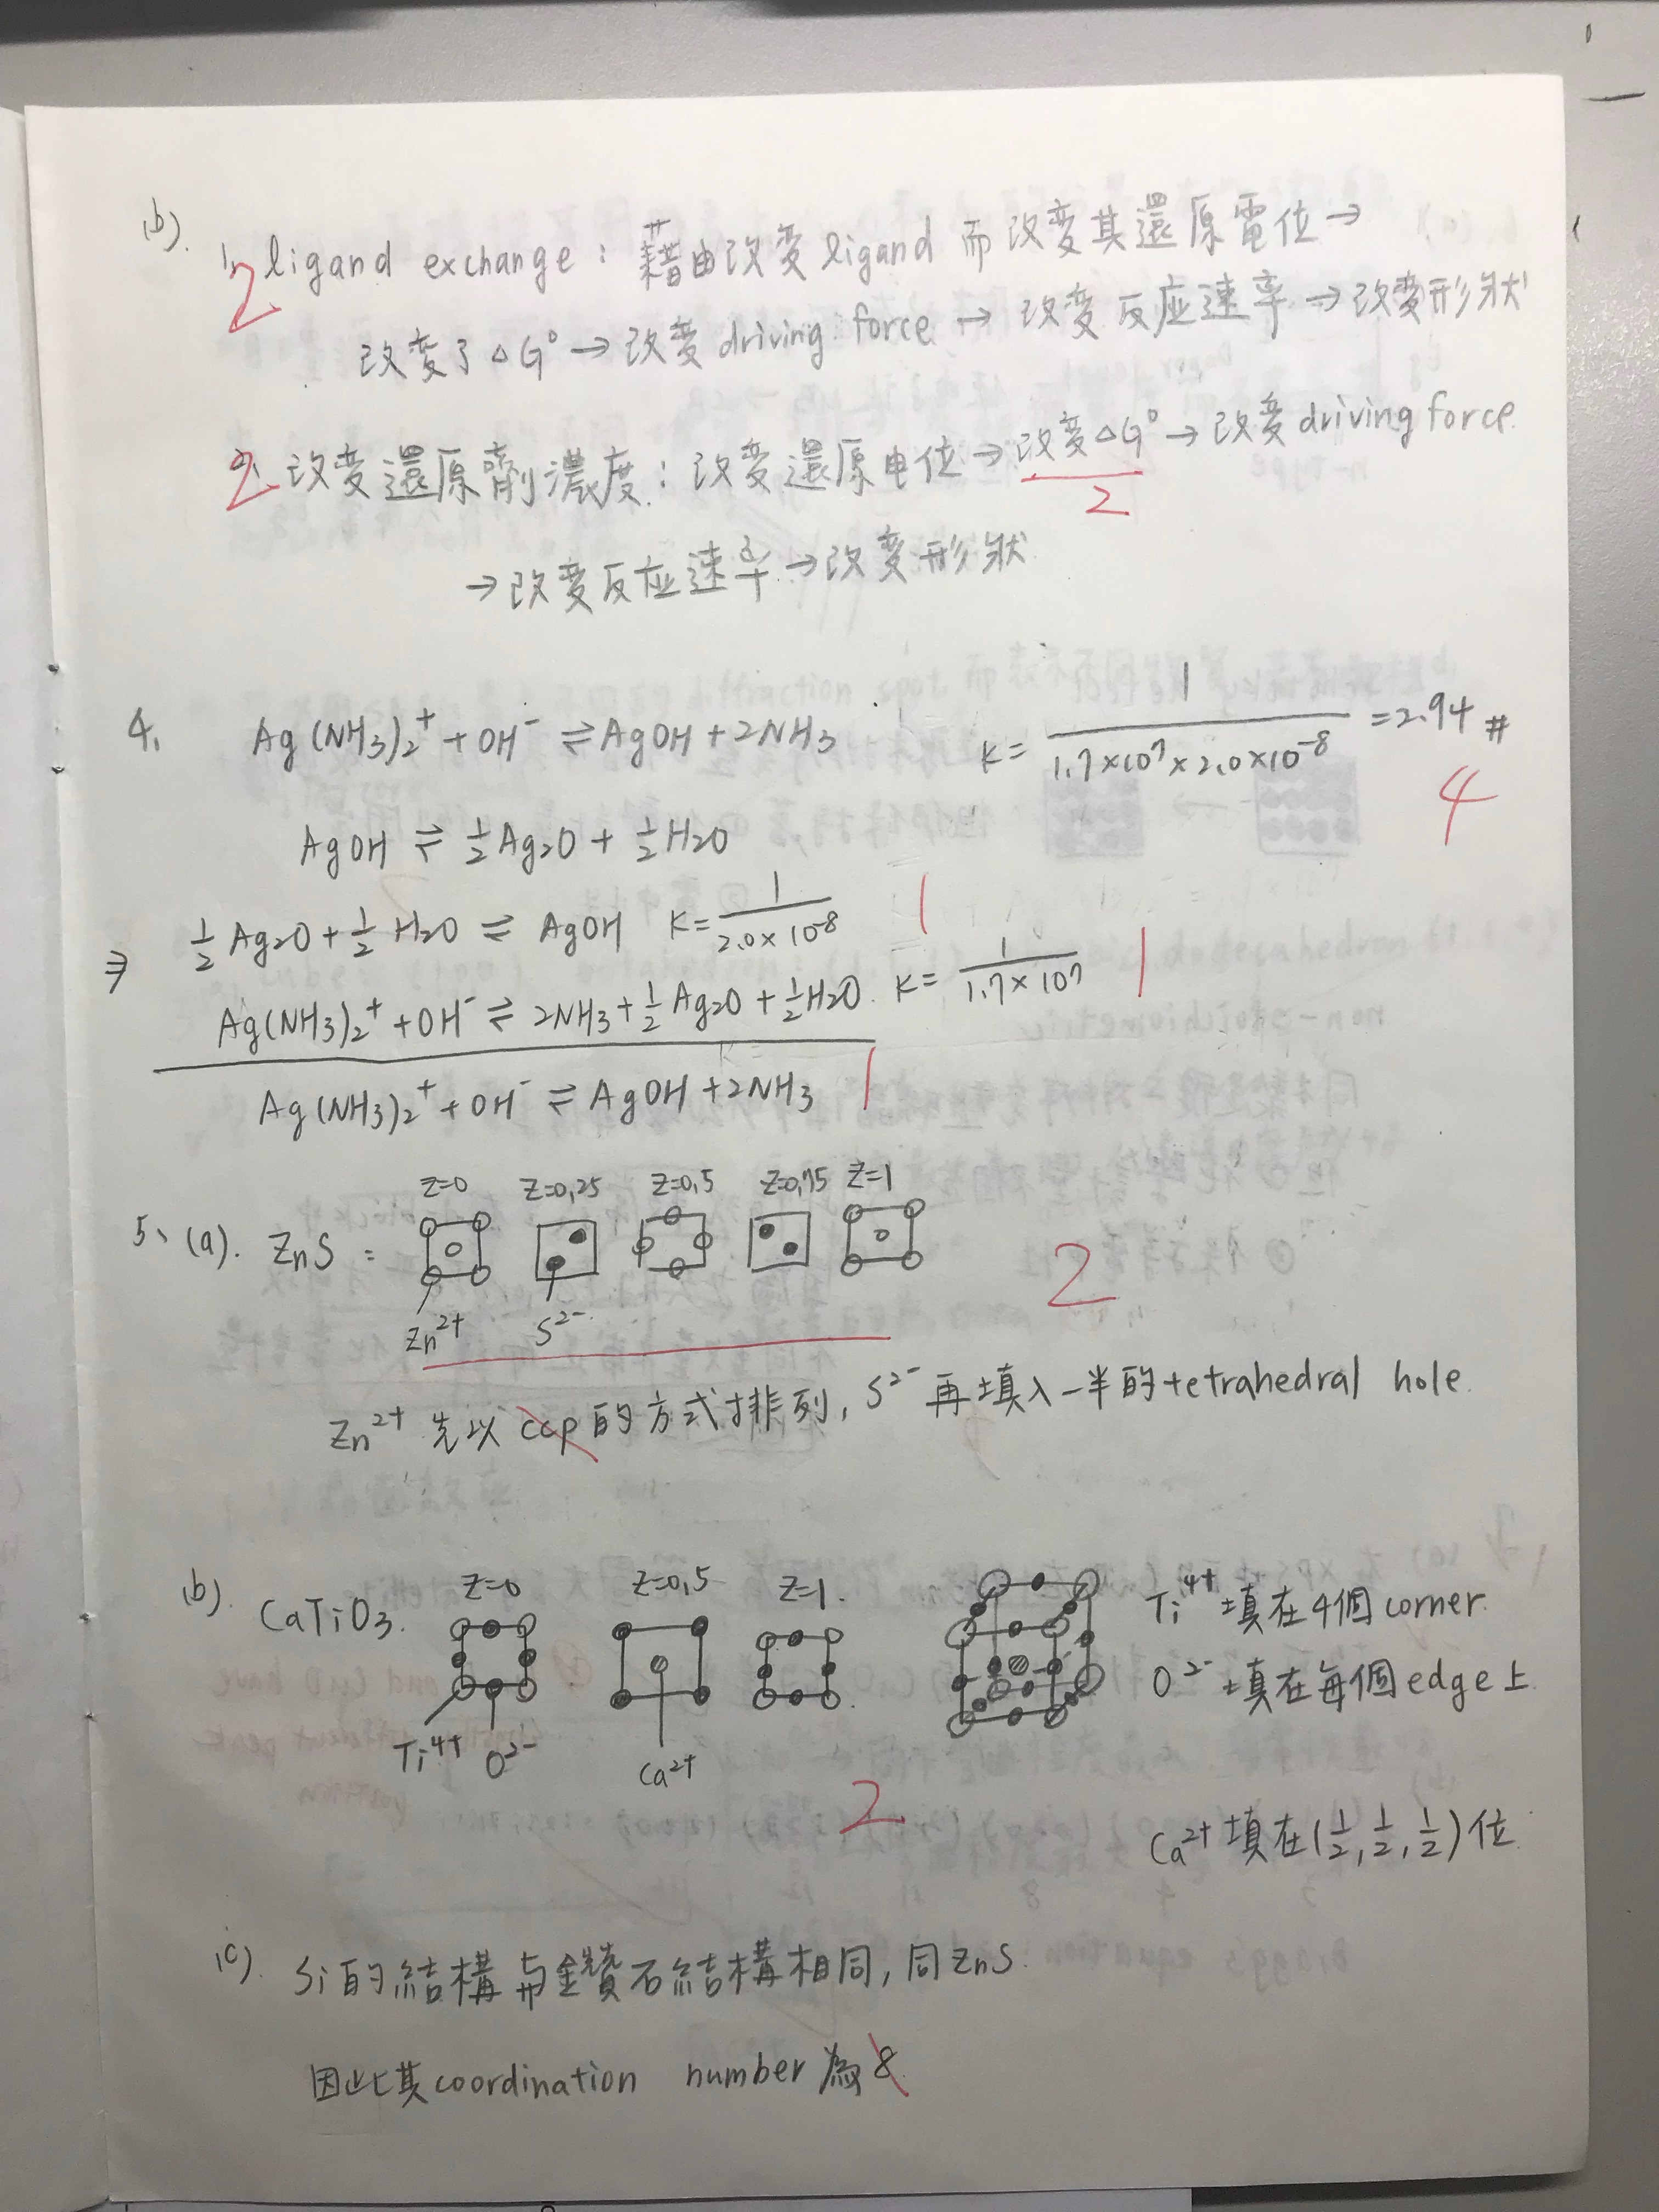 (b). 1. ligand exchange : 藉由改变 ligand 而改变其還原電位→
2
改变了 △G° → 改变 driving force → 改变反应速率 → 改变形狀
2. 改变還原劑濃度 : 改变還原电位 → 改变△G° → 改变 driving force.
2
→ 改变反应速率 → 改变形狀
4. Ag(NH3)2+ + OH- ⇌ AgOH + 2NH3 K = 1 / (1.7×10^7 × 2.0×10^-8) = 2.94 #
4
AgOH ⇌ 1/2 Ag2O + 1/2 H2O
⇒ 1/2 Ag2O + 1/2 H2O ⇌ AgOH K = 1 / (2.0×10^-8) 1
Ag(NH3)2+ + OH- ⇌ 2NH3 + 1/2 Ag2O + 1/2 H2O. K = 1 / (1.7×10^7) 1
Ag(NH3)2+ + OH- ⇌ AgOH + 2NH3 1
Z=0 Z=0.25 Z=0.5 Z=0.75 Z=1
5、(a). ZnS = 2
Zn2+ S2-
Zn2+ 先以 ccp 的方式排列, S2- 再填入一半的 tetrahedral hole.
(b). CaTiO3. Z=0 Z=0.5 Z=1. Ti4+ 填在4個 corner.
O2- 填在每個 edge 上
Ti4+ O2- Ca2+
2
Ca2+ 填在 (1/2, 1/2, 1/2) 位
(c). Si 的結構与鑽石結構相同, 同 ZnS.
因此其 coordination number 為 8